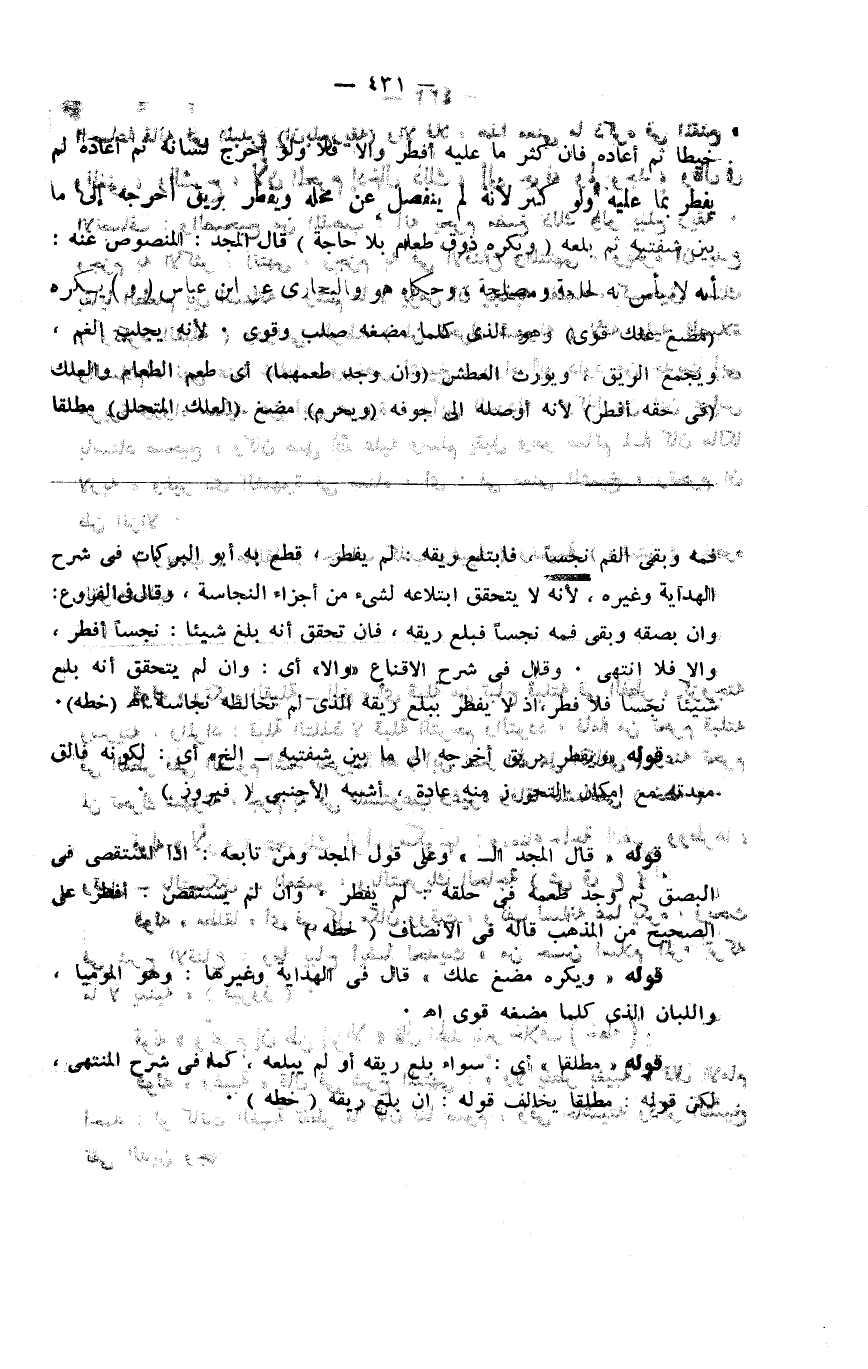 — ٤٣١ —
خيطا ثم أعاده فان كثر ما عليه أفطر والا فلا ولو أخرج لسانه ثم أعاده لم
يفطر بما عليه ولو كثر لأنه لم ينفصل عن محله ويفطر بريق أخرجه إلى ما
بين شفتيه ثم بلعه ( ويكره ذوق طعام بلا حاجة ) قال المجد : المنصوص عنه :
أنه لا بأس به لحاجة ومصلحة ، وحكاه هو والبخارى عن ابن عباس ( و ) يكره
(مضغ علك قوى) وهو الذى كلما مضغه صلب وقوى ٠ لأنه يجلب الغم ،
ويجمع الريق ، ويورث العطش (وان وجد طعمهما) أى طعم الطعام والعلك
(فى حلقه أفطر) لأنه أوصله الى جوفه (ويحرم) مضغ (العلك المتحلل) مطلقا
فمه وبقى الفم نجساً ، فابتلع ريقه : لم يفطر ، قطع به أبو البركات فى شرح
الهداية وغيره ، لأنه لا يتحقق ابتلاعه لشىء من أجزاء النجاسة ، وقال فى الفروع :
وان بصقه وبقى فمه نجساً فبلع ريقه ، فان تحقق أنه بلغ شيئا : نجساً أفطر ،
والا فلا انتهى ٠ وقال فى شرح الاقناع «والا» أى : وان لم يتحقق أنه بلع
شيئاً نجساً فلا فطر، اذ لا يفطر ببلع ريقه الذى لم تخالطه نجاسة اهـ (خطه)٠
قوله «ويفطر بريق أخرجه الى ما بين شفتيه ــ الخ» أى : لكونه فالق
معدته مع امكان التحوز منه عادة ، أشبه الأجنبى ( فيروز ) ٠
قوله « قال المجد الــ » وعلى قول المجد ومن تابعه : اذا استقصى فى
البصق ثم وجد طعمه فى حلقه : لم يفطر ، وان لم يستقص : أفطر على
الصحيح من المذهب قاله فى الانصاف ( خطه ) ٠
قوله « ويكره مضغ علك » قال فى الهداية وغيرها : وهو الموميا ،
واللبان الذي كلما مضغه قوى اهـ ٠
قوله « مطلقا » أى : سواء بلع ريقه أو لم يبلعه ، كما فى شرح المنتهى ،
لكن قوله : مطلقا يخالف قوله : ان بلع ريقه ( خطه ) ٠